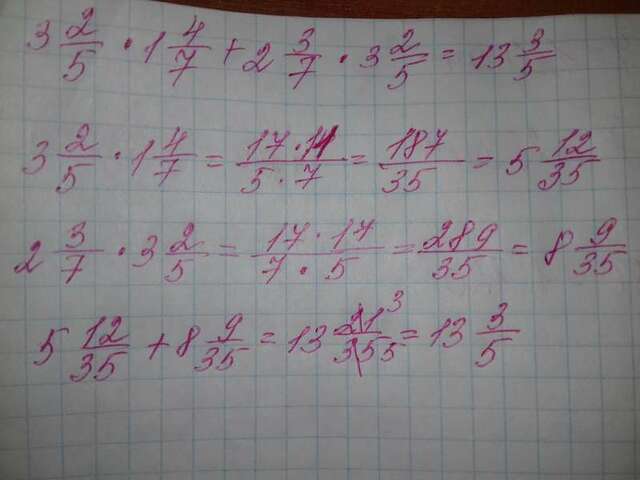 3 2/5 · 1 4/7 + 2 3/7 · 3 2/5 = 13 3/5
3 2/5 · 1 4/7 = 17 · 11 / 5 · 7 = 187/35 = 5 12/35
2 3/7 · 3 2/5 = 17 · 17 / 7 · 5 = 289/35 = 8 9/35
5 12/35 + 8 9/35 = 13 21 3 / 35 5 = 13 3/5